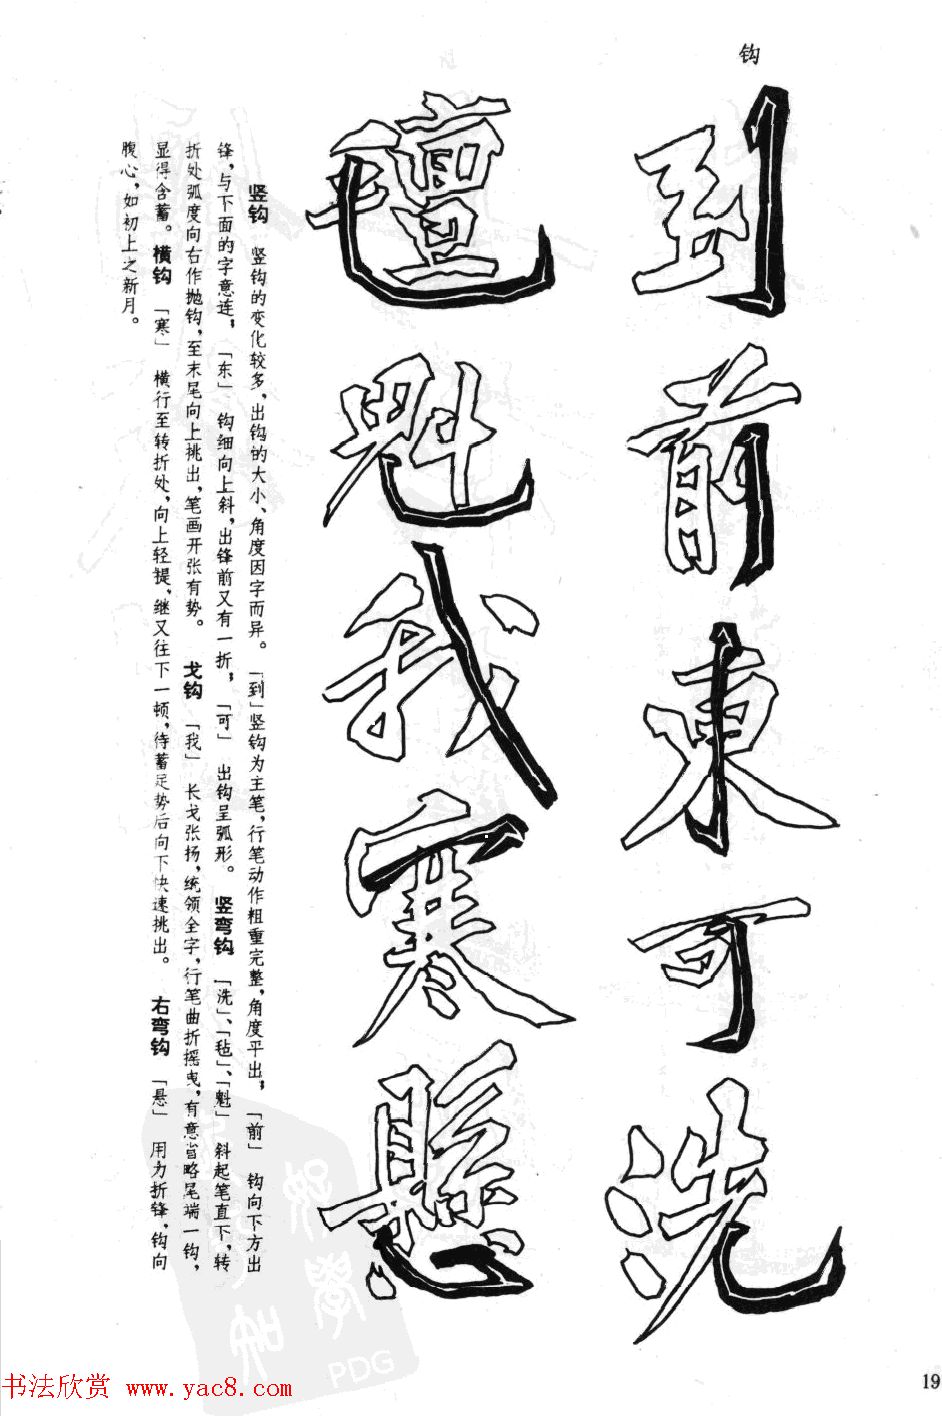 钩
到前東可洗
氊魁我寒懸
竖钩　竖钩的变化较多，出钩的大小、角度因字而异。「到」竖钩为主笔，行笔动作粗重完整，角度平出；「前」钩向下方出
锋，与下面的字意连；「东」钩细向上斜，出锋前又有一折；「可」出钩呈弧形。　竖弯钩　「洗」、「毡」、「魁」斜起笔直下，转
折处弧度向右作抛钩，至末尾向上挑出，笔画开张有势。　戈钩　「我」长戈张扬，统领全字，行笔曲折摇曳，有意省略尾端一钩，
显得含蓄。　横钩　「寒」横行至转折处，向上轻提，继又往下一顿，待蓄足势后向下快速挑出。　右弯钩　「悬」用力折锋，钩向
腹心，如初上之新月。
PDG
书法欣赏 www.yac8.com
19